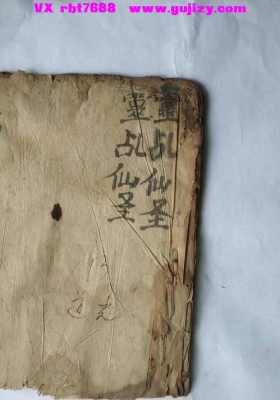 VX rbt7688 www.gujizy.com
靈乩仙圣
靈乩仙圣
道光